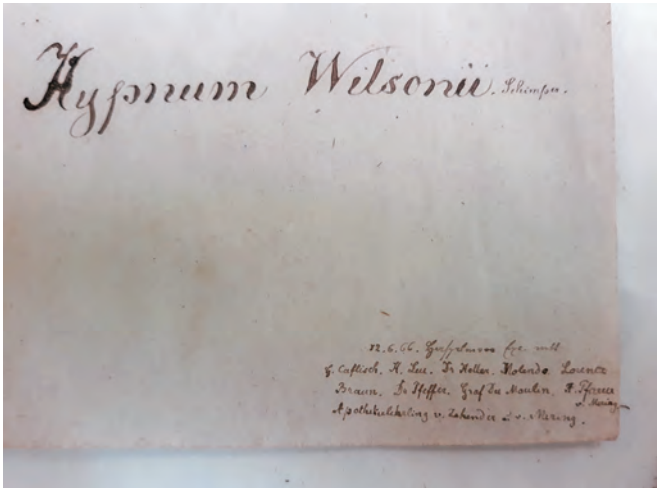 Hypnum Wilsonii. Schimper.
12.6.66. Exc. mit
F. Caflisch, A. Luc. Dr Holler. Molendo. Lorentz
Braun. Dr Pfeffer. Graf Du Moulin. Pfarrer
v. Mering
Apothekerlehrling v. Zahender v. Mering.